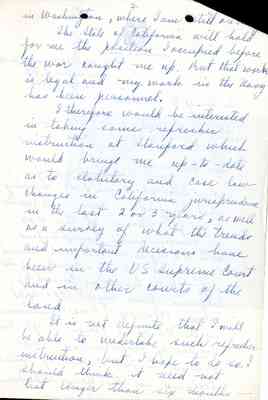 2
in Washington, where I am still on
The State of California will hold
for me the position I occupied before
the war caught me up. But that work
is legal and my work in the Navy
has been personnel.
I therefore would be interested
in taking some refresher
instruction at Stanford which
would bring me up-to-date
as to statutory and case law
changes in California jurisprudence
in the last 2 or 3 years, as well
as a survey of what the trends
and important decisions have
been in the US Supreme Court
and in other courts of the
land.
It is not definite that I will
be able to undertake such refresher
instruction, but I hope to do so. I
should think it need not
last longer than six months —